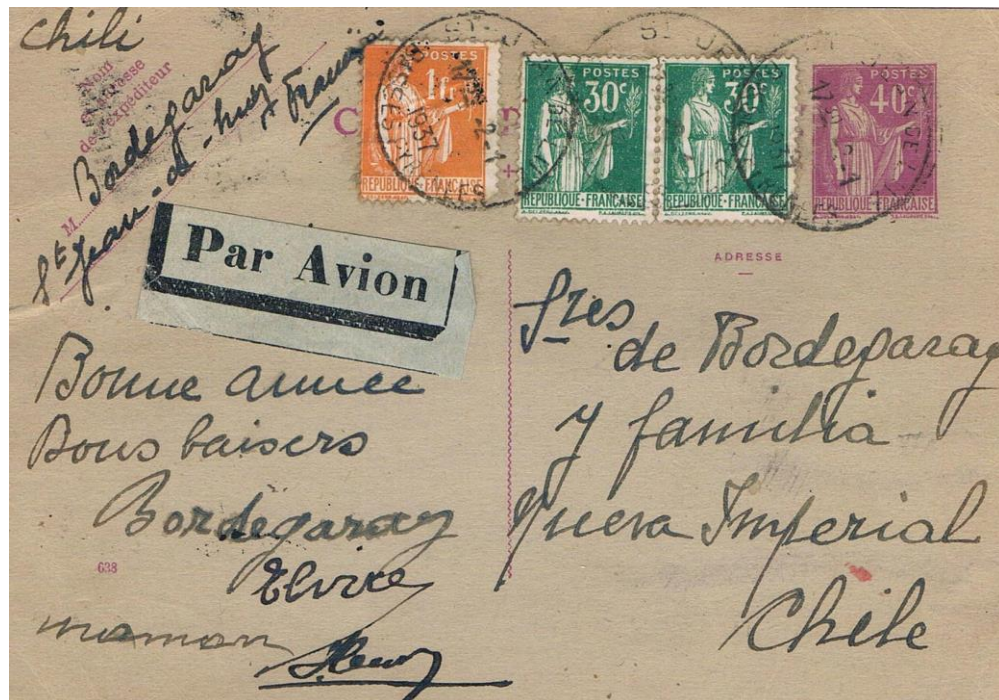 Chili
Nom
et adresse
de l'expéditeur
M. Bordegaray
St Jean-de-Luz
France
POSTES
1fr
RÉPUBLIQUE FRANÇAISE
POSTES
30c
RÉPUBLIQUE FRANÇAISE
POSTES
30c
RÉPUBLIQUE FRANÇAISE
POSTES
40c
RÉPUBLIQUE FRANÇAISE
1937
Par Avion
ADRESSE
Sres
de Bordegaray
y familia
Nueva Imperial
Chile
Bonne année
Bons baisers
Bordegaray
638
maman